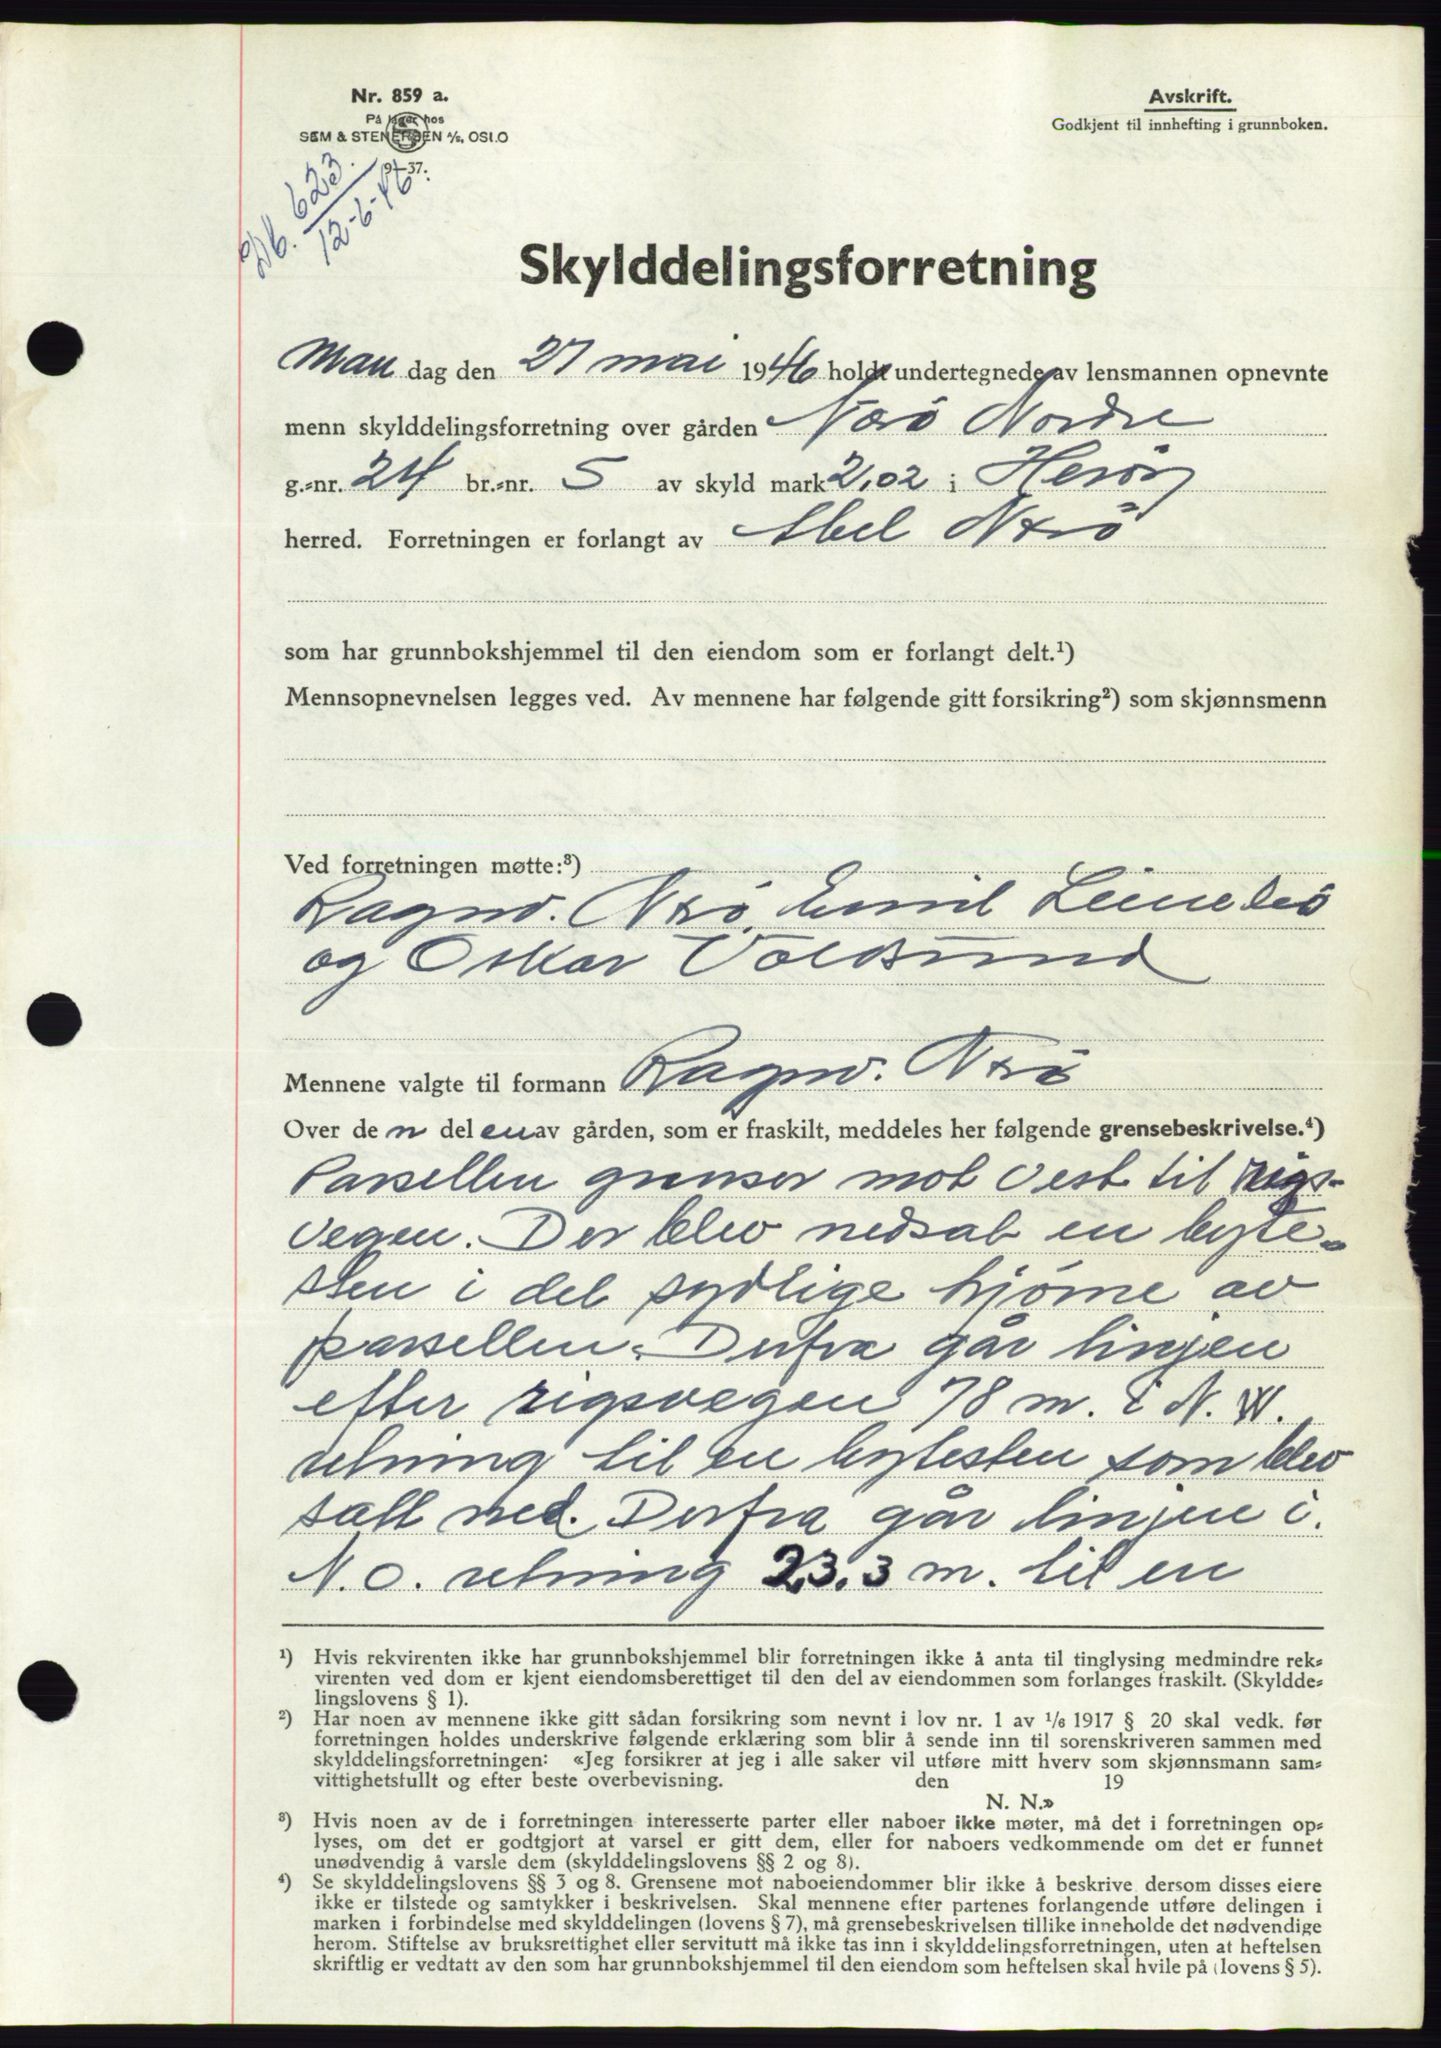 Nr. 859 a.
På lager hos
SEM & STENERSEN A/S, OSLO
9-37.
Avskrift.
Godkjent til innhefting i grunnboken.
Db. 623.
12-6-46
Skylddelingsforretning
Man dag den 27 mai 1946 holdt undertegnede av lensmannen opnevnte
menn skylddelingsforretning over gården Nærø Nordre
g.=nr. 24 br.=nr. 5 av skyld mark 2,02 i Herøy
herred. Forretningen er forlangt av Abel Nærö
som har grunnbokshjemmel til den eiendom som er forlangt delt.¹)
Mennsopnevnelsen legges ved. Av mennene har følgende gitt forsikring²) som skjønnsmenn
Ved forretningen møtte:³)
Ragnv. Nærö, Emil Leine
og Oskar Voldsund
Mennene valgte til formann Ragnv. Nærö
Over de n del en av gården, som er fraskilt, meddeles her følgende grensebeskrivelse.⁴)
Parsellen grenser mot vest til rigs-
vegen. Der blev nedsat en byte-
sten i det sydlige hjörne av
parsellen. Derfra går linjen
efter rigsvegen 78 m. i N. W.
retning til en bytesten som blev
satt ned. Derfra går linjen i.
N.O. retning 23.3 m. til en
¹) Hvis rekvirenten ikke har grunnbokshjemmel blir forretningen ikke å anta til tinglysing medmindre rek=
virenten ved dom er kjent eiendomsberettiget til den del av eiendommen som forlanges fraskilt. (Skyldde=
lingslovens § 1).
²) Har noen av mennene ikke gitt sådan forsikring som nevnt i lov nr. 1 av 1/6 1917 § 20 skal vedk. før
forretningen holdes underskrive følgende erklæring som blir å sende inn til sorenskriveren sammen med
skylddelingsforretningen: «Jeg forsikrer at jeg i alle saker vil utføre mitt hverv som skjønnsmann sam=
vittighetsfullt og efter beste overbevisning. den 19
N. N.»
³) Hvis noen av de i forretningen interesserte parter eller naboer ikke møter, må det i forretningen op=
lyses, om det er godtgjort at varsel er gitt dem, eller for naboers vedkommende om det er funnet
unødvendig å varsle dem (skylddelingslovens §§ 2 og 8).
⁴) Se skylddelingslovens §§ 3 og 8. Grensene mot naboeiendommer blir ikke å beskrive dersom disses eiere
ikke er tilstede og samtykker i beskrivelsen. Skal mennene efter partenes forlangende utføre delingen i
marken i forbindelse med skylddelingen (lovens § 7), må grensebeskrivelsen tillike inneholde det nødvendige
herom. Stiftelse av bruksrettighet eller servitutt må ikke tas inn i skylddelingsforretningen, uten at heftelsen
skriftlig er vedtatt av den som har grunnbokshjemmel til den eiendom som heftelsen skal hvile på (lovens § 5).